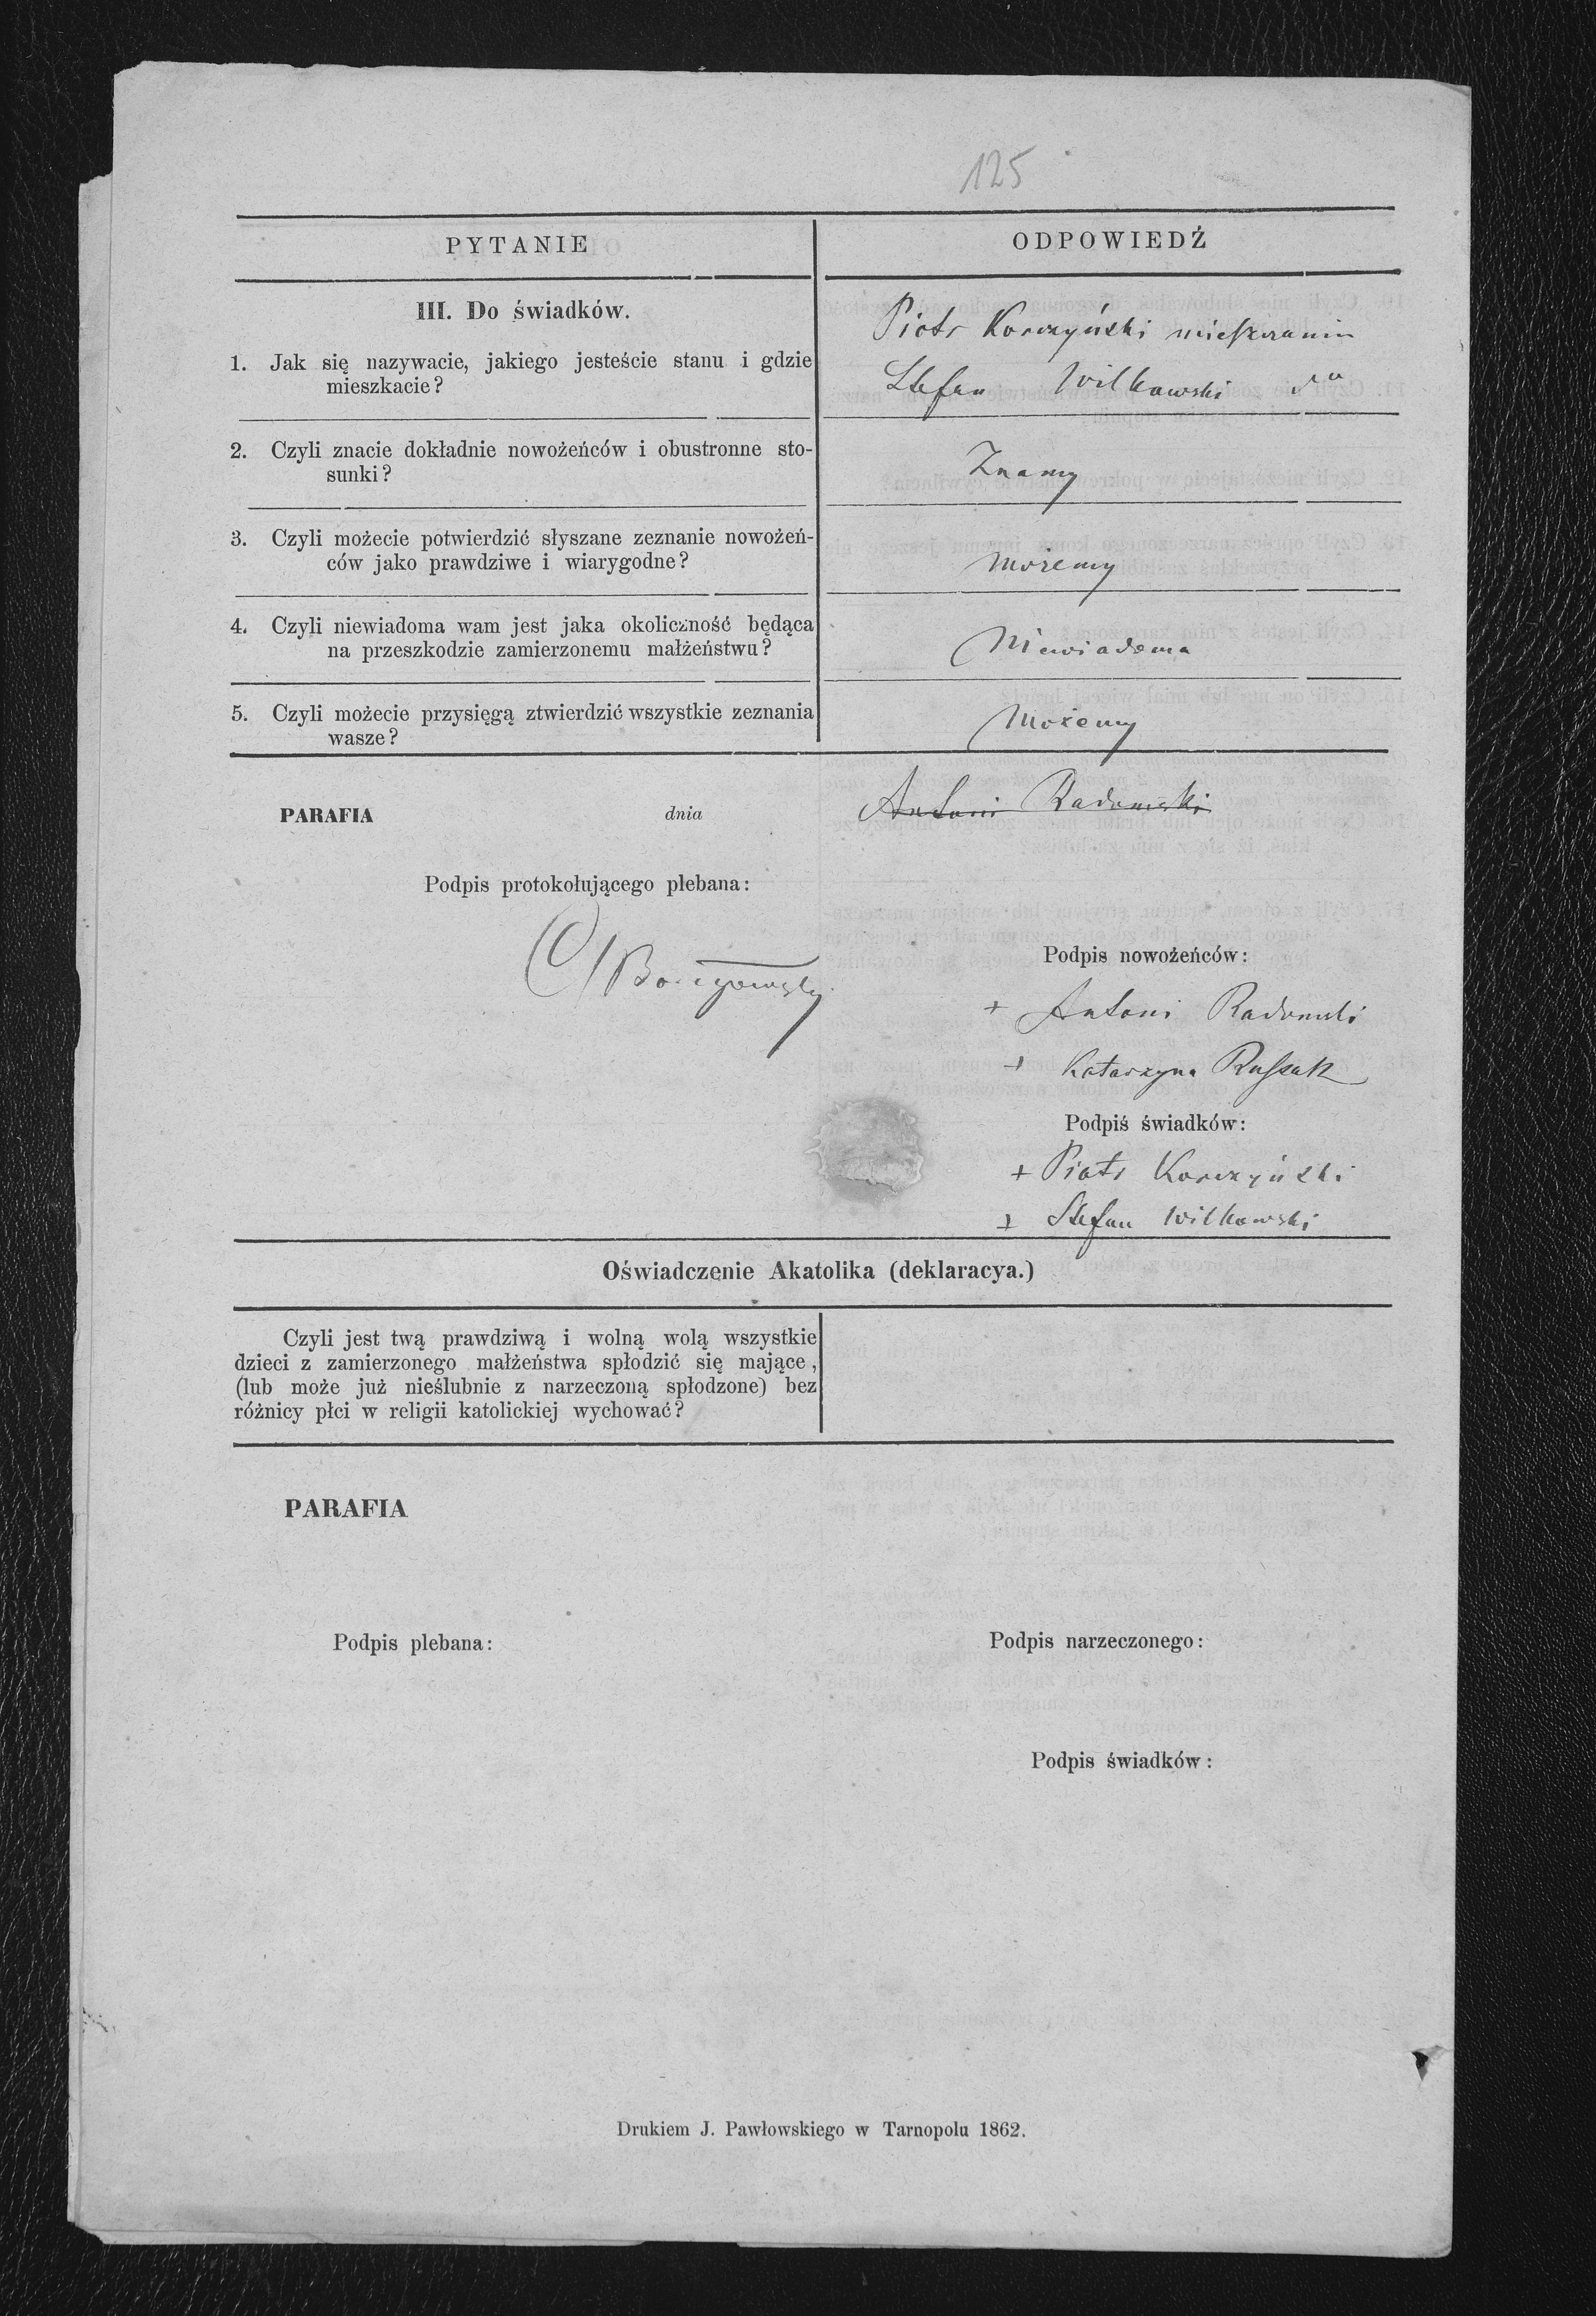 125
PYTANIE
ODPOWIEDŹ
III. Do świadków.
1. Jak się nazywacie, jakiego jesteście stanu i gdzie
mieszkacie?
Piotr Korczyński mieszczanin
Stefan Wilkowski do
2. Czyli znacie dokładnie nowożeńców i obustronne sto-
sunki?
Znamy
3. Czyli możecie potwierdzić słyszane zeznanie nowożeń-
ców jako prawdziwe i wiarygodne?
Możemy
4. Czyli niewiadoma wam jest jaka okoliczność będąca
na przeszkodzie zamierzonemu małżeństwu?
Niewiadoma
5. Czyli możecie przysięgą ztwierdzić wszystkie zeznania
wasze?
Możemy
PARAFIA dnia
Antoni Radomski
Podpis protokołującego plebana:
Podpis nowożeńców:
+ Antoni Radomski
+ Katarzyna Russak
Podpiś świadków:
+ Piotr Korczyński
+ Stefan Wilkowski
Oświadczenie Akatolika (deklaracya.)
Czyli jest twą prawdziwą i wolną wolą wszystkie
dzieci z zamierzonego małżeństwa spłodzić się mające,
(lub może już nieślubnie z narzeczoną spłodzone) bez
różnicy płci w religii katolickiej wychować?
PARAFIA
Podpis plebana:
Podpis narzeczonego:
Podpis świadków:
Drukiem J. Pawłowskiego w Tarnopolu 1862.